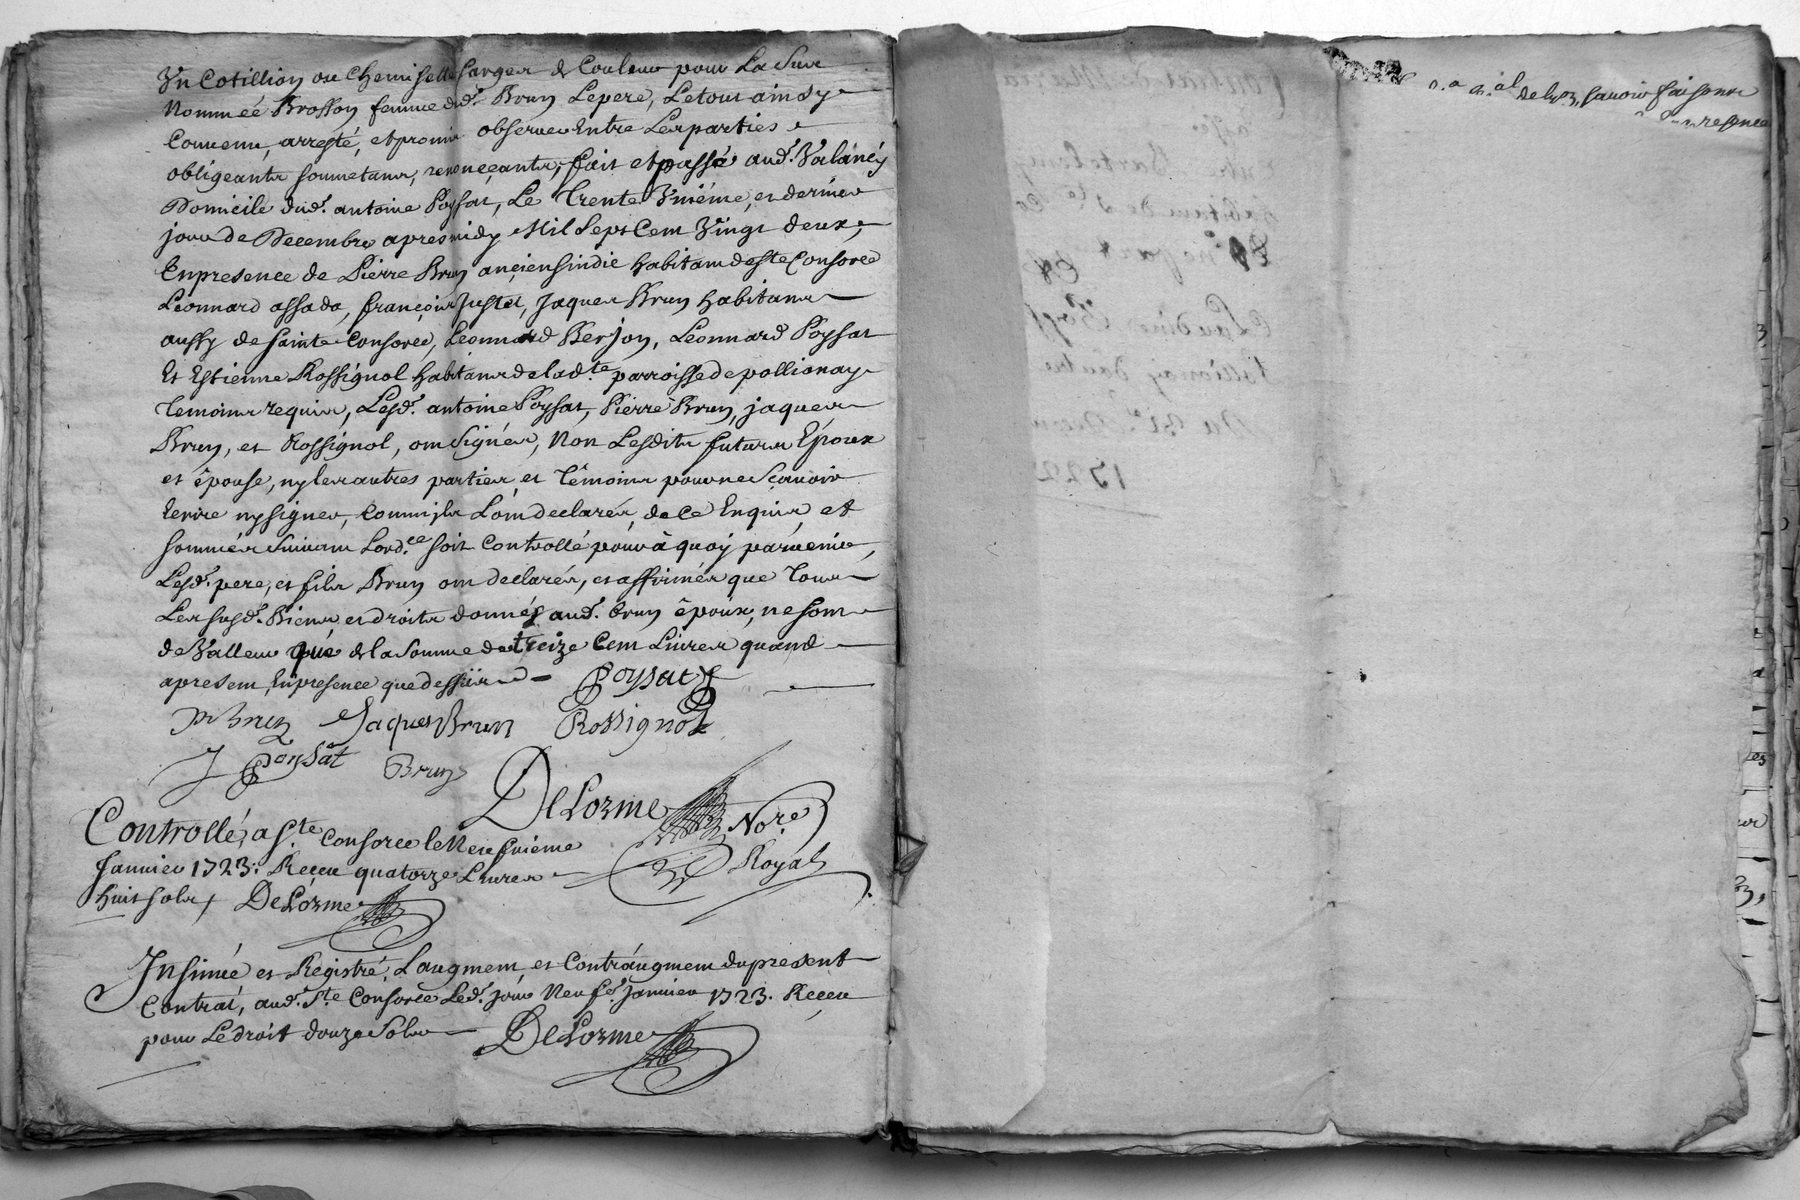 Un Cotillion ou Chemisette sarges de Couleur pour La Sœur
Nommée Brosson femme dud.t Brun Lepere, Letout ainsy
Convenu, arresté, et promis observer Entre Lesparties
obligeants soumetans, renonçeants, fait et passé aud.t Valáncý
Domicile dud.t antoine Poysat, Le Trente Unième, et dernier
jour de Decembre apresmidy Mil Sept Cent Vingt deux,
Enpresence de Pierre Brun ancien sindic habitant de Ste Consorce
Léonnard assada, françois Justet, Jaques Brun habitans
aussy de Sainte Consorce, Leonnard Berjon, Léonnard Poysat
Et Estienne Rossignol habitans de ladte parroisse de pollionay
Temoins requis, Lesd.t antoine Poysat, Pierre Brun, jaques
Brun, et Rossignol, ont Signés, Non Lesdits futurs Époux
et épouse, ny les autres parties et Témoins pour ne Sçavoir
Ecrire ny signer, Comm'ils L'ont declarés, de ce Enquis, et
sommés Suivant Lord.ce soit Controllé pour à quoy parvenir,
Lesd.t pere, et fils Brun ont declarés, et affirmés que Tous
Les susd.t Biens et droits donnés aud.t brun époux, ne sont
de Valleur que de la Somme de treize Cent Livres quand
apresent, Enpresence que dessus
Poysat
P Brun Jaques Brun Rossignol
J Poysat Brun
DeLorme Nore
Royal
Controllé, a Ste Consorce le Neufvième
Janvier 1723: Receu quatorze Livres
huit sols, DeLorme
Insinué et Registré, Laugment, et Contráugment du present
Contrat, aud.t Ste Consorce Led.t jour Neuf.e janvier 1723. Receu
pour Le droit douze Sols DeLorme
savoir faisons